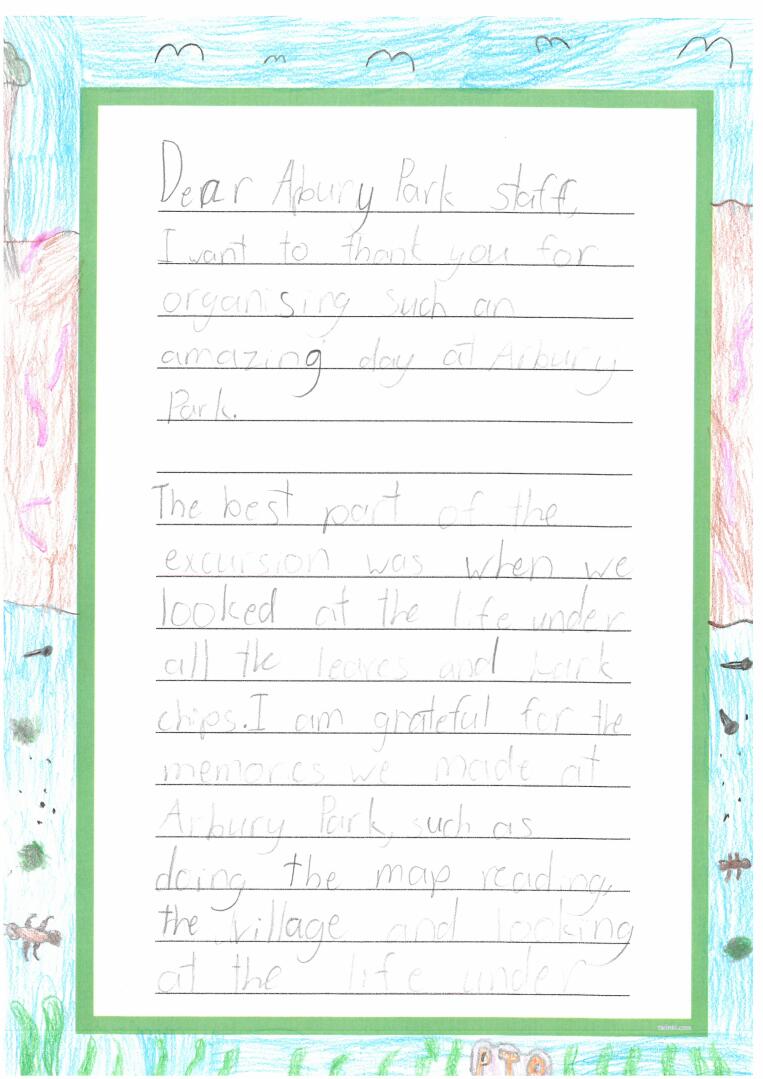 Dear Arbury Park staff,
I want to thank you for
organising such an
amazing day at Arbury
Park.
The best part of the
excursion was when we
looked at the life under
all the leaves and bark
chips. I am grateful for the
memores we made at
Arbury Park, such as
doing the map reading,
the village and looking
at the life under
twinkl.com
PTO